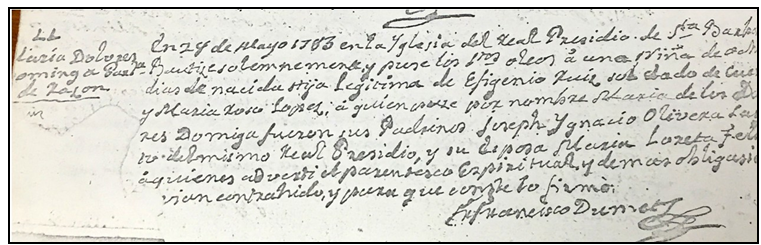 LL
Maria Dolores
Dominga
de Razon
En 24 de Mayo 1783 en la Yglesia del Real Presidio de Sta Barba
Bautize solemnemente, y puse los Stos oleos â una Niña de ocho
dias de nacida Hija legitima de Efigenio Ruiz Soldado de Cuera
y Maria Rosa Lopez; â quien puse por nombre Maria de los Dolo
res Dominga fueron sus Padrinos Joseph Ygnacio Olivera
del mismo Real Presidio, y su Esposa Maria Loreta Feliz
â quienes adverti el parentesco Espiritual, y demas obligasio
vian contrahido, y para que conste lo firmè.
Fr Francisco Dumetz